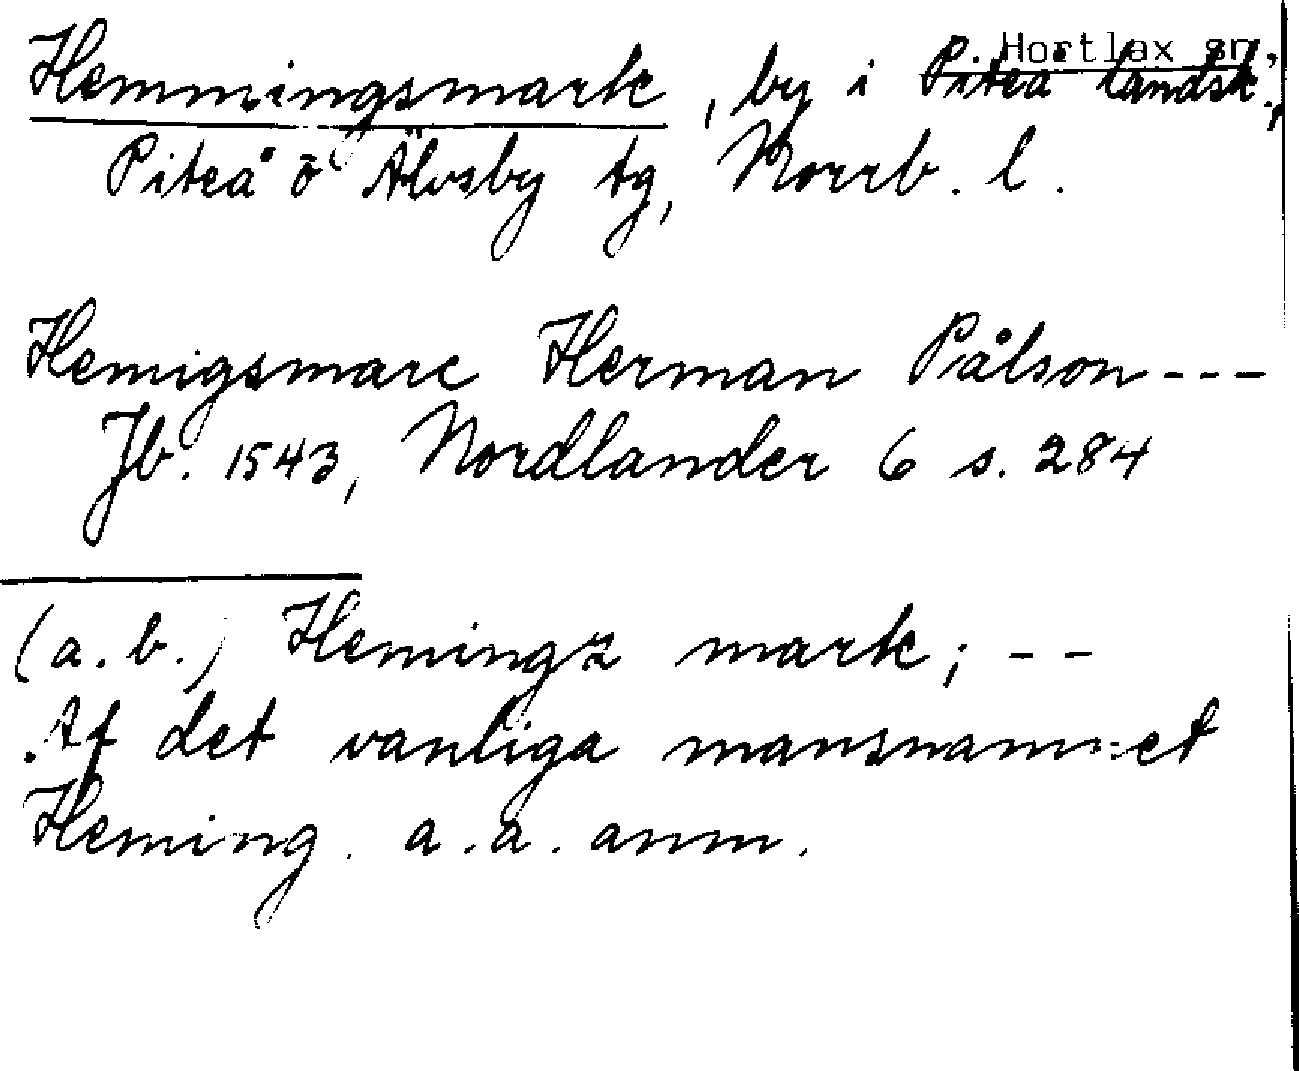 Hortlax sn.
Hemmingsmark, by i Piteå landsk.,
Piteå o Älvsby tg, Norrb. l.
Hemigsmarc Herman Pålson ---
Jb. 1543, Nordlander 6 s. 284
(a.b.) Hemingz mark; --
Af det vanliga mansnamnet
Heming. a.a. anm.